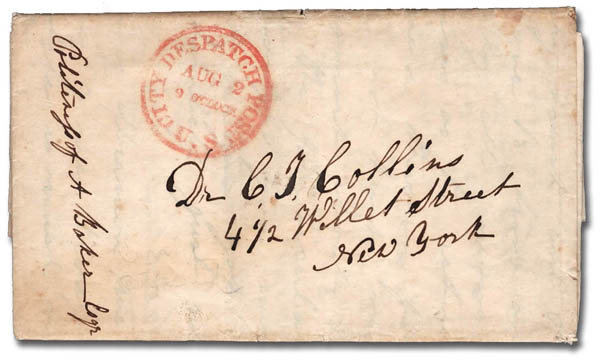 Politeness of A Baker Esqr
U.S. CITY DESPATCH POST
AUG 2
9 O'CLOCK
Dr C. J. Collins
4 1/2 Willet Street
New York